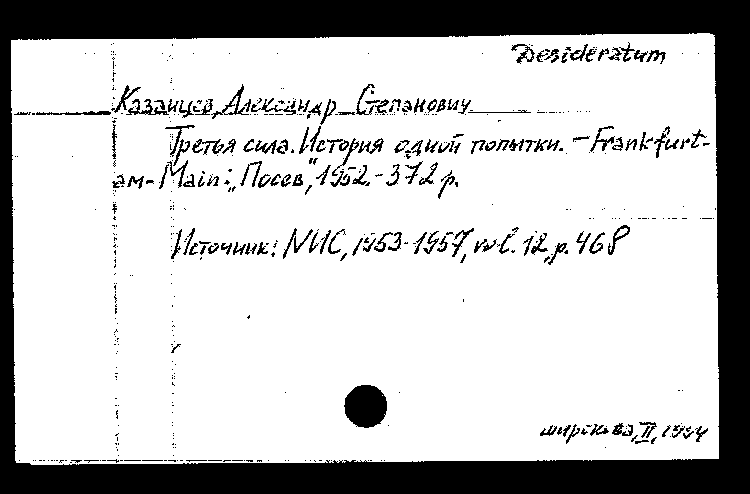 Desideratum
Казанцев, Александр Степанович
Третья сила. История одной попытки. – Frankfurt-
ам-Main: „Посев", 1952. – 372 p.
Источник: NUC, 1953-1957, vol. 12, p. 468
широкова, II, 1994